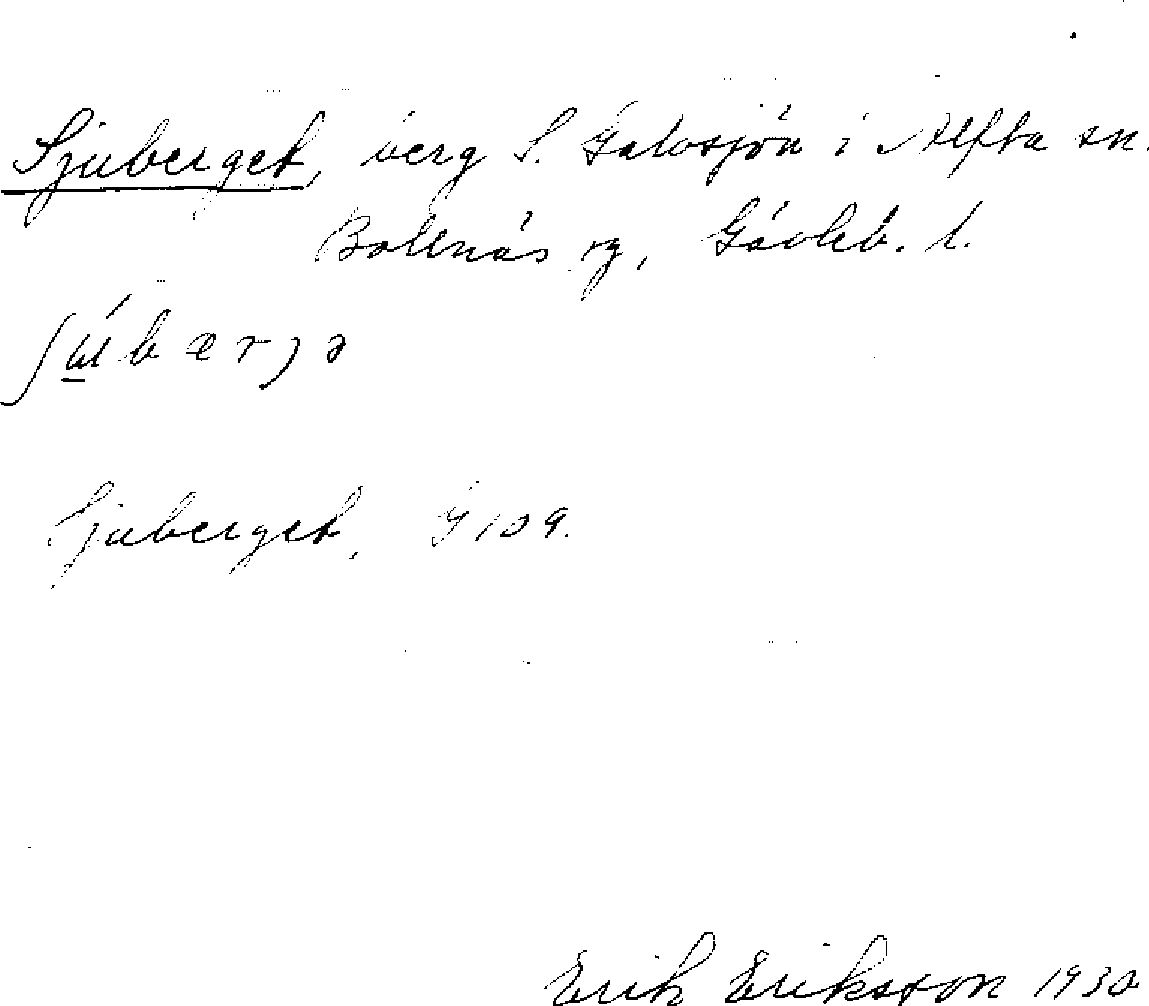 Sjuberget, berg S. Galvsjön i Alfta sn.
Bollnäs rg, Gävleb. l.
ʃú̲bærjə
Sjuberget, G 109.
Erik Eriksson 1930